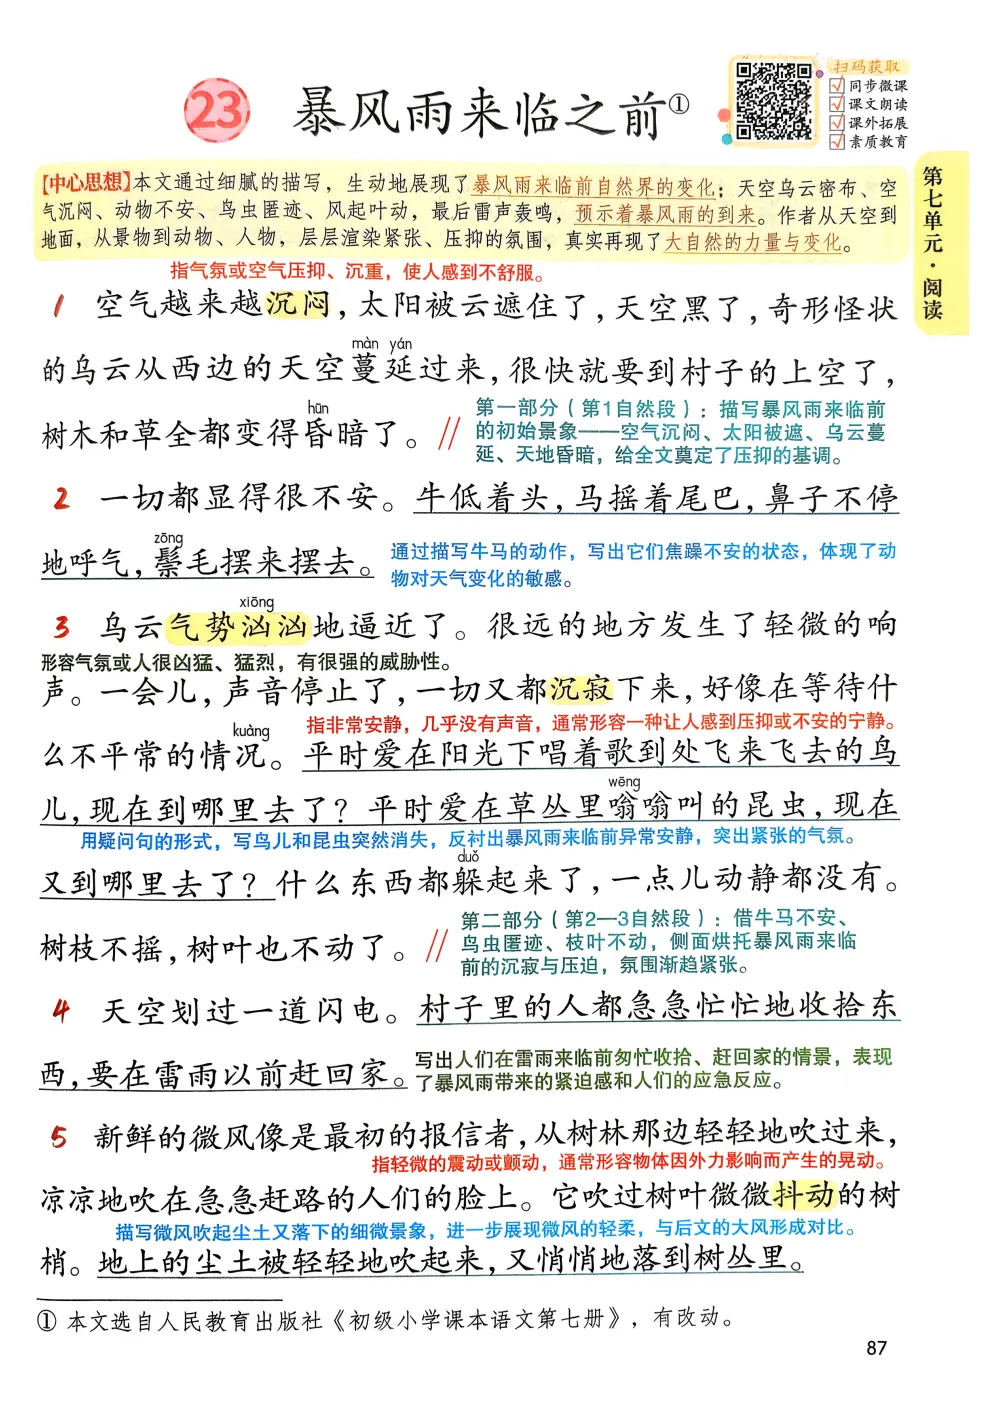 23 暴风雨来临之前①
扫码获取
同步微课
课文朗读
课外拓展
素质教育
第七单元·阅读
【中心思想】本文通过细腻的描写，生动地展现了暴风雨来临前自然界的变化；天空乌云密布、空
气沉闷、动物不安、鸟虫匿迹、风起叶动，最后雷声轰鸣，预示着暴风雨的到来。作者从天空到
地面，从景物到动物、人物，层层渲染紧张、压抑的氛围，真实再现了大自然的力量与变化。
指气氛或空气压抑、沉重，使人感到不舒服。
1 空气越来越沉闷，太阳被云遮住了，天空黑了，奇形怪状
màn yán
的乌云从西边的天空蔓延过来，很快就要到村子的上空了，
hūn
树木和草全都变得昏暗了。//
第一部分（第1自然段）：描写暴风雨来临前
的初始景象——空气沉闷、太阳被遮、乌云蔓
延、天地昏暗，给全文奠定了压抑的基调。
2 一切都显得很不安。牛低着头，马摇着尾巴，鼻子不停
zōng
地呼气，鬃毛摆来摆去。
通过描写牛马的动作，写出它们焦躁不安的状态，体现了动
物对天气变化的敏感。
xiōng
3 乌云气势汹汹地逼近了。很远的地方发生了轻微的响
形容气氛或人很凶猛、猛烈，有很强的威胁性。
声。一会儿，声音停止了，一切又都沉寂下来，好像在等待什
指非常安静，几乎没有声音，通常形容一种让人感到压抑或不安的宁静。
kuàng
么不平常的情况。平时爱在阳光下唱着歌到处飞来飞去的鸟
wēng
儿，现在到哪里去了？平时爱在草丛里嗡嗡叫的昆虫，现在
用疑问句的形式，写鸟儿和昆虫突然消失，反衬出暴风雨来临前异常安静，突出紧张的气氛。
duǒ
又到哪里去了？什么东西都躲起来了，一点儿动静都没有。
树枝不摇，树叶也不动了。//
第二部分（第2—3自然段）：借牛马不安、
鸟虫匿迹、枝叶不动，侧面烘托暴风雨来临
前的沉寂与压迫，氛围渐趋紧张。
4 天空划过一道闪电。村子里的人都急急忙忙地收拾东
西，要在雷雨以前赶回家。
写出人们在雷雨来临前匆忙收拾、赶回家的情景，表现
了暴风雨带来的紧迫感和人们的应急反应。
5 新鲜的微风像是最初的报信者，从树林那边轻轻地吹过来，
指轻微的震动或颤动，通常形容物体因外力影响而产生的晃动。
凉凉地吹在急急赶路的人们的脸上。它吹过树叶微微抖动的树
描写微风吹起尘土又落下的细微景象，进一步展现微风的轻柔，与后文的大风形成对比。
梢。地上的尘土被轻轻地吹起来，又悄悄地落到树丛里。
① 本文选自人民教育出版社《初级小学课本语文第七册》，有改动。
87